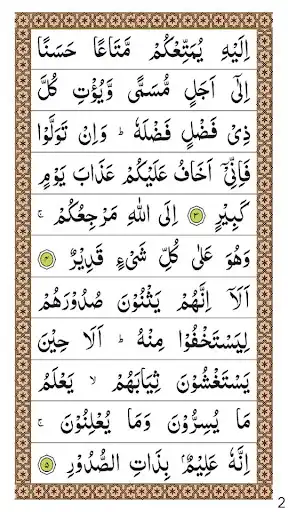 اِلَيْهِ يُمَتِّعْكُمْ مَّتَاعًا حَسَنًا
اِلٰٓى اَجَلٍ مُّسَمًّى وَّيُؤْتِ كُلَّ
ذِىْ فَضْلٍ فَضْلَهٗ ؕ وَاِنْ تَوَلَّوْا
فَاِنِّىْۤ اَخَافُ عَلَيْكُمْ عَذَابَ يَوْمٍ
كَبِيْرٍ ﴿۳﴾ اِلَى اللّٰهِ مَرْجِعُكُمْ ۚ
وَهُوَ عَلٰى كُلِّ شَىْءٍ قَدِيْرٌ ﴿۴﴾
اَلَاۤ اِنَّهُمْ يَثْنُوْنَ صُدُوْرَهُمْ
لِيَسْتَخْفُوْا مِنْهُ ؕ اَلَا حِيْنَ
يَسْتَغْشُوْنَ ثِيَابَهُمْ ۙ يَعْلَمُ
مَا يُسِرُّوْنَ وَمَا يُعْلِنُوْنَ ۚ
اِنَّهٗ عَلِيْمٌۢ بِذَاتِ الصُّدُوْرِ ﴿۵﴾
2